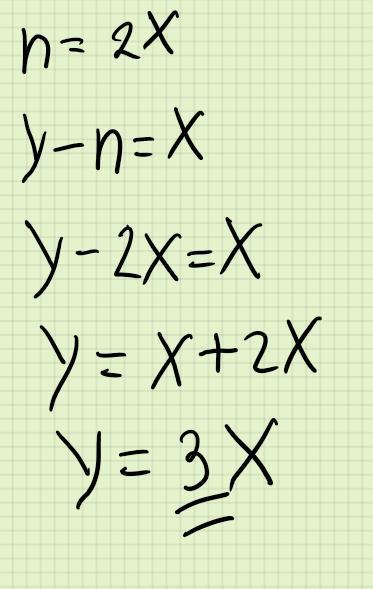 n = 2x
y - n = x
y - 2x = x
y = x + 2x
y = 3x